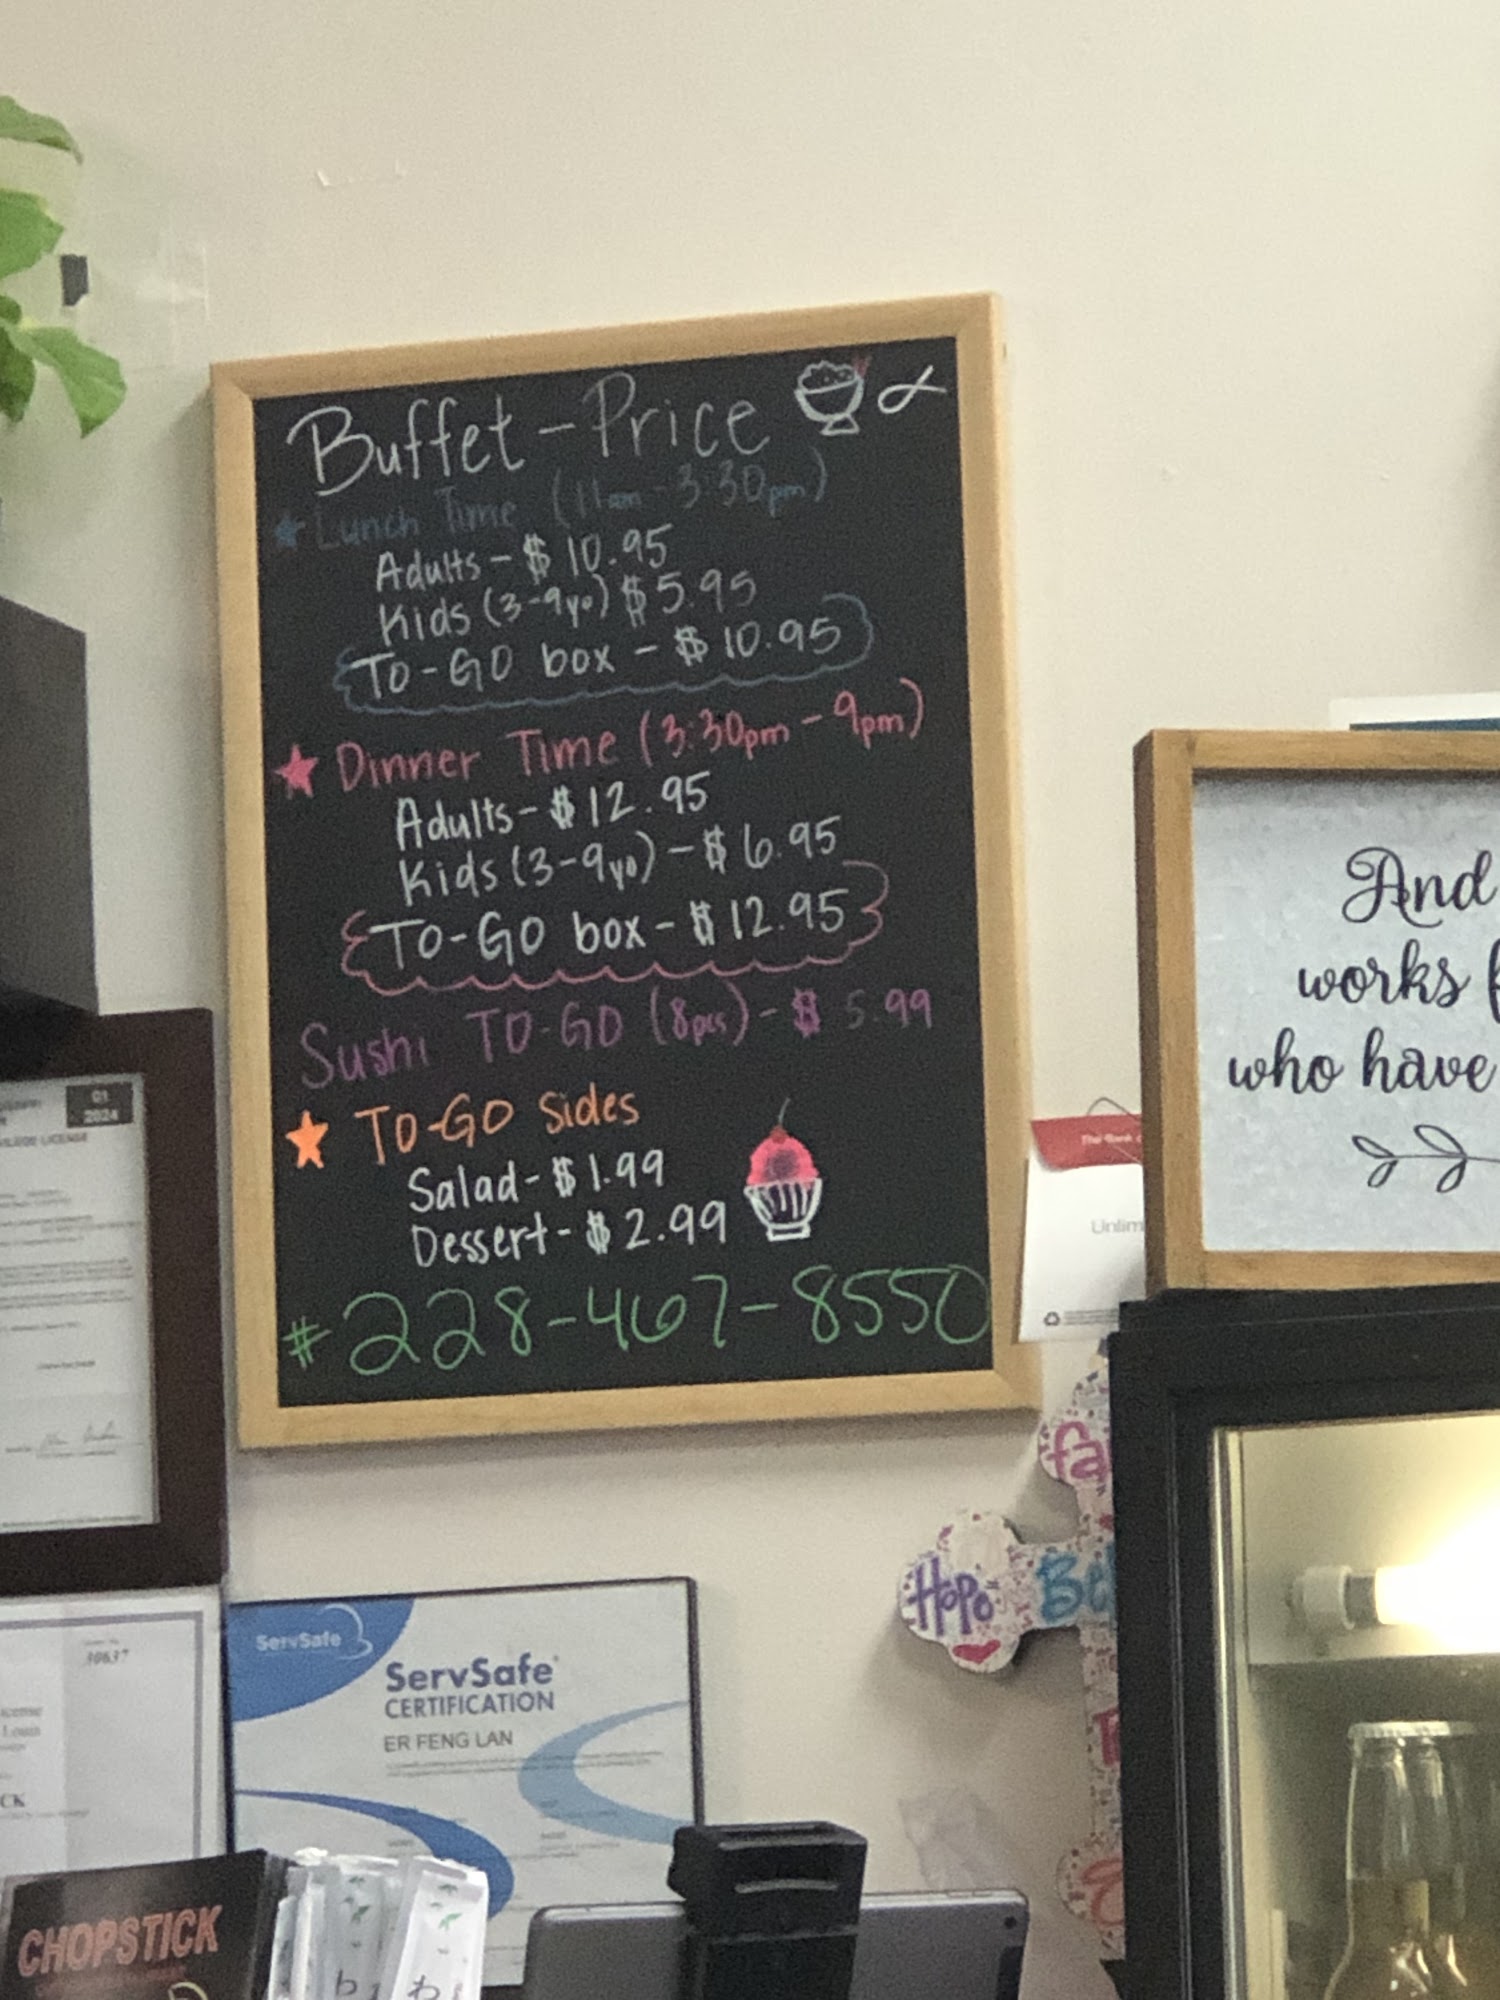 Buffet-Price
Lunch Time (11am-3:30pm)
Adults-$10.95
Kids (3-9yo) $5.95
TO-GO box - $10.95
Dinner Time (3:30pm-9pm)
Adults-$12.95
Kids (3-9yo)-$6.95
TO-GO box-$12.95
Sushi TO-GO (8pcs)-$5.99
TO-GO Sides
Salad-$1.99
Dessert-$2.99
#228-467-8550
And
works
who have
Unlim
01
2024
30637
CK
ServSafe
ServSafe
CERTIFICATION
ER FENG LAN
fa
Hope
Bel
CHOPSTICK